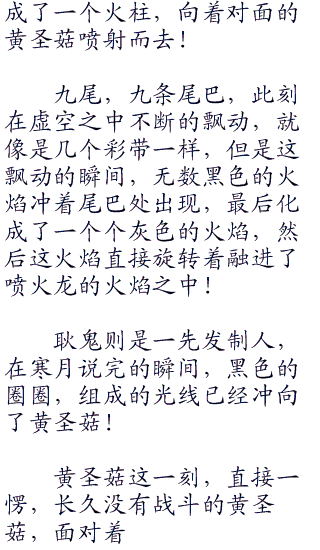 成了一个火柱，向着对面的
黄圣菇喷射而去！
九尾，九条尾巴，此刻
在虚空之中不断的飘动，就
像是几个彩带一样，但是这
飘动的瞬间，无数黑色的火
焰冲着尾巴处出现，最后化
成了一个个灰色的火焰，然
后这火焰直接旋转着融进了
喷火龙的火焰之中！
耿鬼则是一先发制人，
在寒月说完的瞬间，黑色的
圈圈，组成的光线已经冲向
了黄圣菇！
黄圣菇这一刻，直接一
愣，长久没有战斗的黄圣
菇，面对着